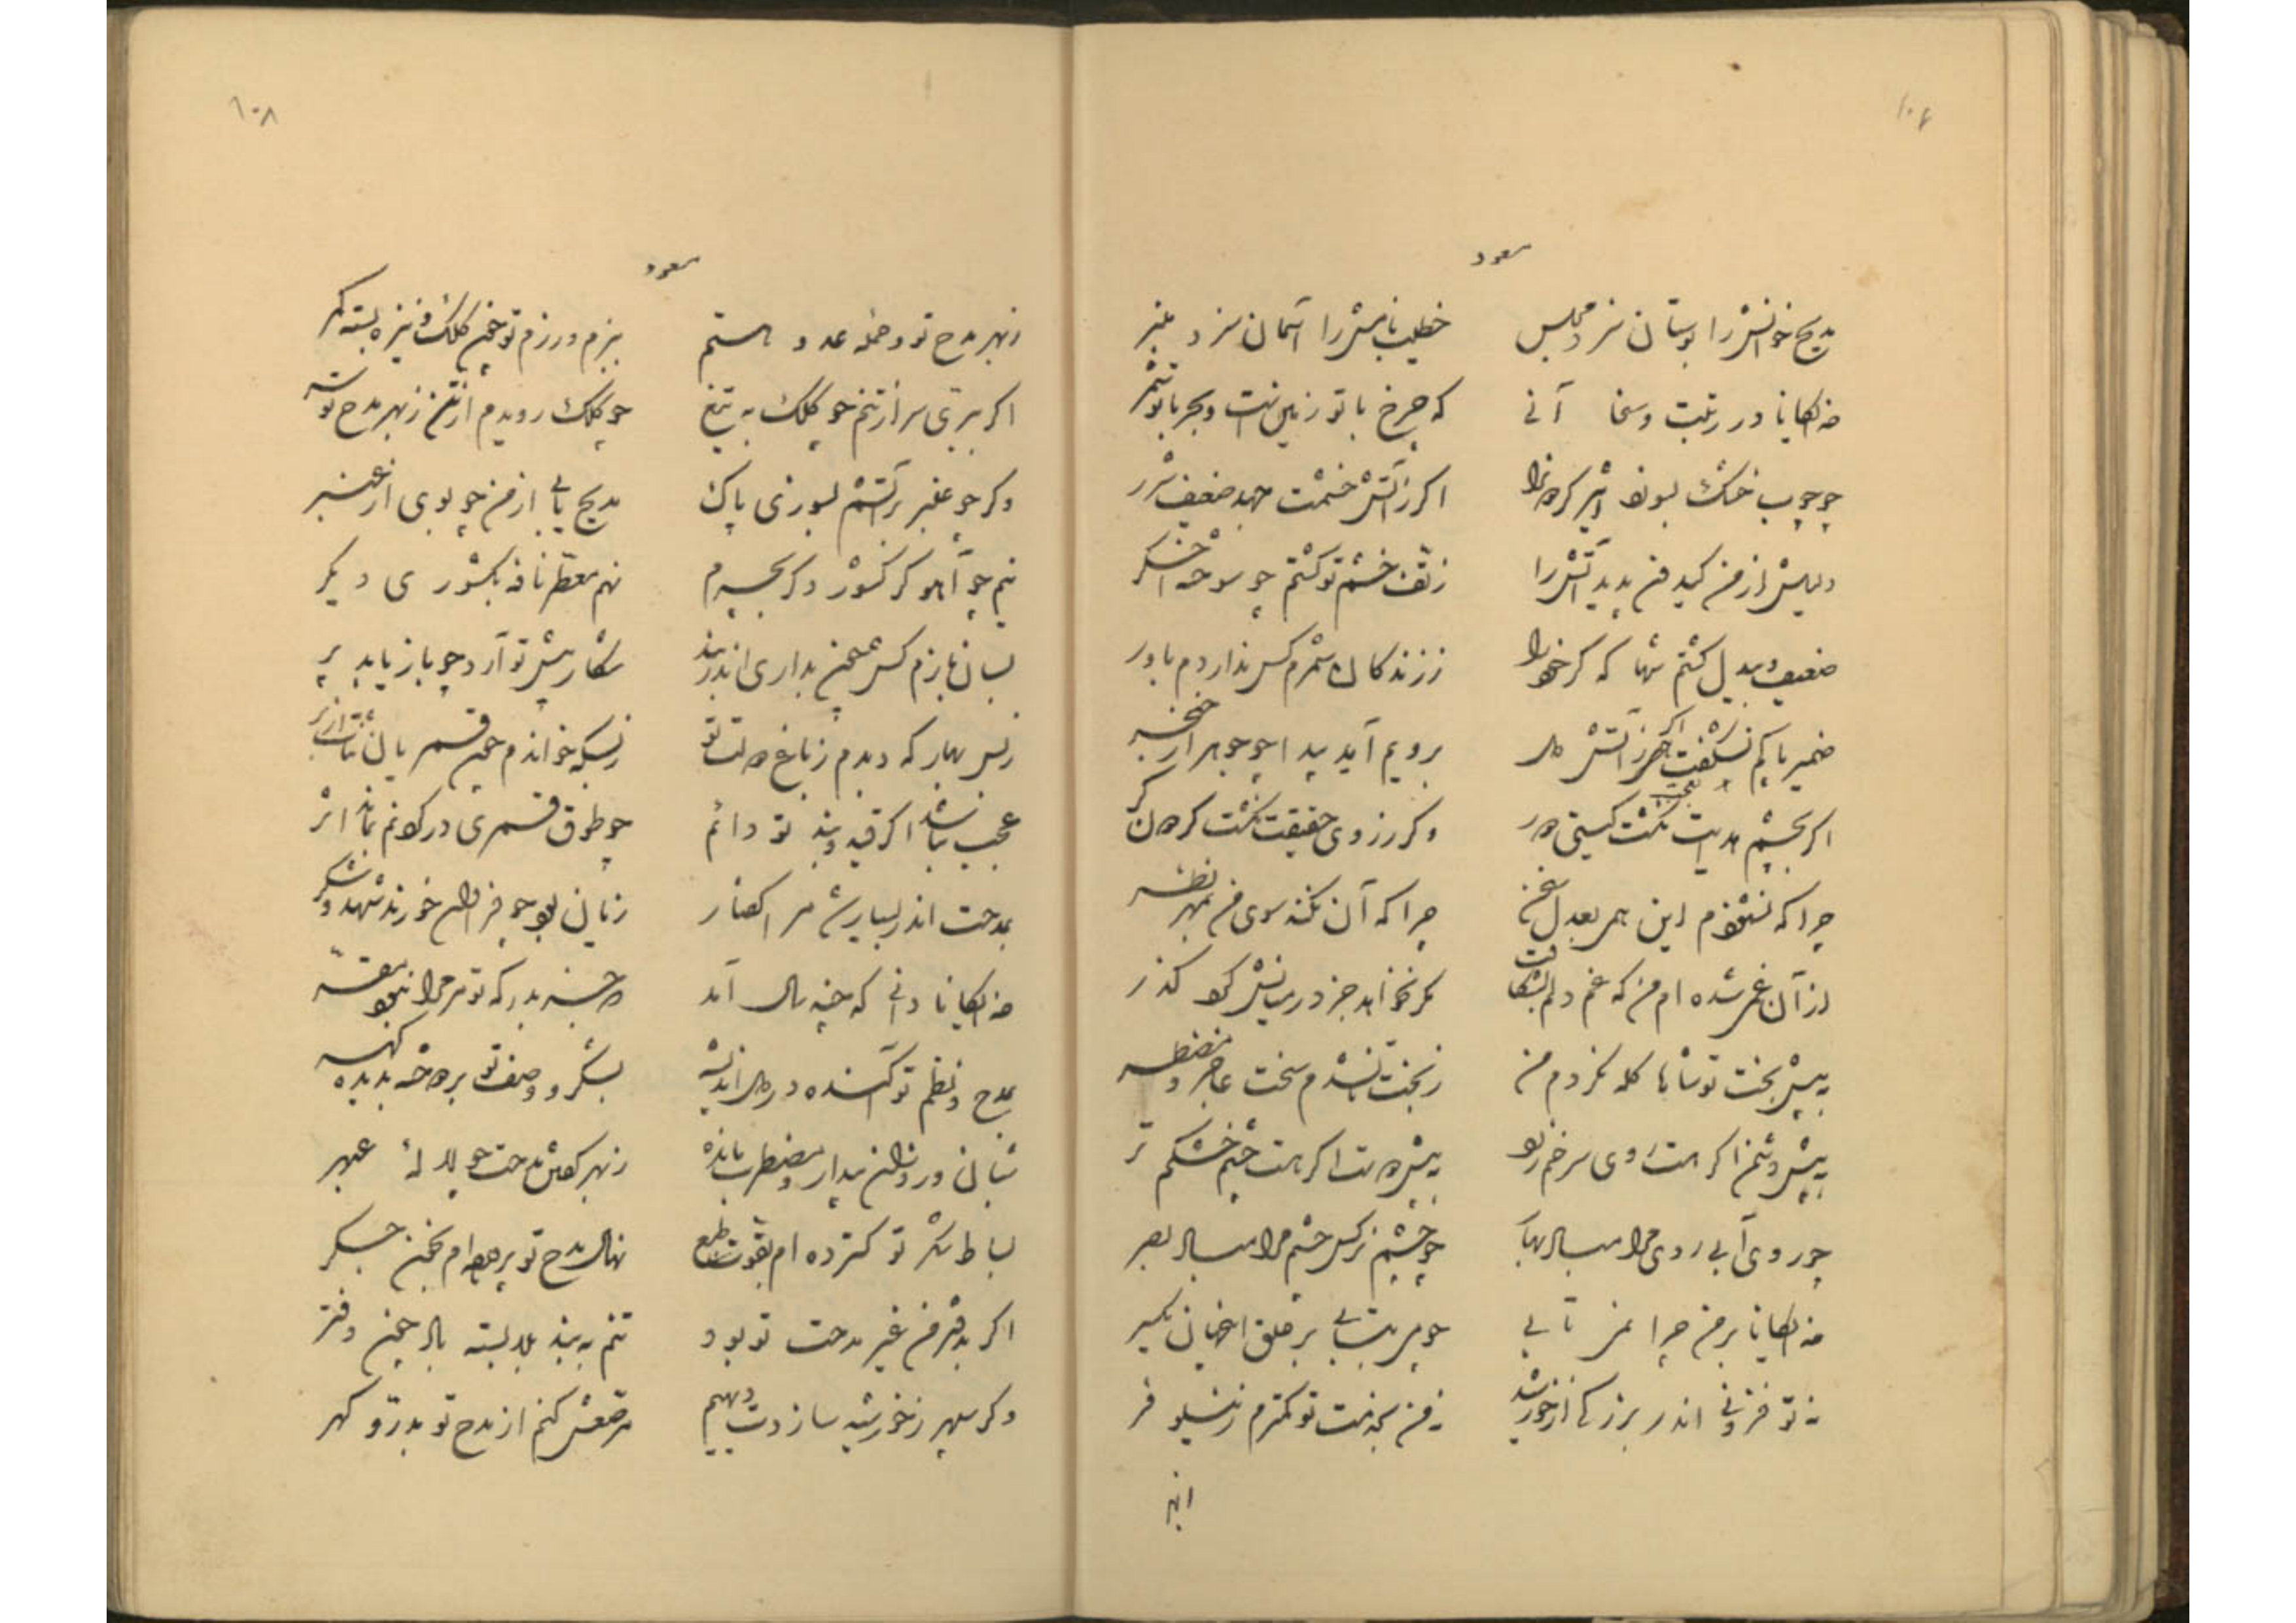 ۱۰۶
مسعود
مدیح خوانش را بوستان سزد مجلس خطیب نامش را آسمان سزد منبر
خدایگانا در رتبت و سخا آنی که چرخ با تو زمین است و بحر با تو شمر
چو چوب خشک بسوزد اثیر گردون را اگر ز آتش خشمت جهد ضعیف شرر
دلیلش از من گیر و من پدید آتش را ز تف خشم تو گشتم چو سوخته اخگر
ضعیف و بیدل گشتم شها که گر خود را ز زندگان شمرم کس نداردم باور
ضمیر پاکم نشگفت اگر ز آتش دل برویم آید پیدا چو جوهر از خنجر
اگر بچشم بدیت نگشت گیتی و گر ز روی حقیقت نگشت گردون کر
چرا که نشنود این همی بعدل سخن چرا که آن نکند سوی من بمهر نظر
از آن غمی شده‌ام من که غم دلم بشکافت مگر نخواهد جز در میانش کرد گذر
به پیش بخت تو شاها گله نکردم من ز بخت تا نشدم سخت عاجز و مضطر
به پیش دشمن اگر هست روی سرخم زرد به پیش دوست اگر هست چشم خشکم تر
چو روی آبی روی مرا مسای بهاک چو چشم نرگس چشم مرا مسای بصر
خدایگانا بر من چرا نمی تابی چو می بتابی بر خلق این جهان یکسر
نه تو فزونی اندر بزرگی از خورشید نه من بخدمت تو کمترم ز نیلوفر
۱۰۸
مسعود
ز بهر مدح تو و خدمه عدو هستم ببزم و رزم تو چون کلک و نیزه بسته کمر
اگر ببری سر از تنم چو کلک به تیغ چو کلک رویدم از تن ز بهر مدح تو سر
وگر چو عنبر بر آتشم بسوزی پاک مدیح یابی از من چو بوی از عنبر
نیم چو آهو کز کشور دگر بچرم نهم معطر نافه بکشوری دیگر
بسان بازم کش چون بداری اندر بند شکار پیش تو آرد چو باز یابد پر
ز بس بهار که دیدم ز باغ دولت تو ز بسکه خواندم چون قمریان ثنات از بر
عجب نباشد اگر قید و بند تو دائم چو طوق قمری در گردنم نماند اثر
بمدحت اندر بسیار شد مرا گفتار زیان بود چو فراوان خورند شهد و شکر
خدایگانا دانی که چند سال آمد که چند بدر که تو مر مرا نبود مقر
بمدح و نظم تو آکنده در دل اندیشه بشکر و وصف تو بردوخته بدیده سهر
شبان و روزان بیدار و مضطرب مانده ز بهر گفتن مدحت چو لاله عبهر
بساط شکر تو گسترده‌ام بقوت طبع نهال مدح تو پرورده‌ام بخون جگر
اگر بدفتر من غیر مدحت تو بود تنم به بند بلا بسته باد چون دفتر
وگر سپهر ز خورشید سازدت دیهیم مرصعش کنم از مدح تو بدر و گهر